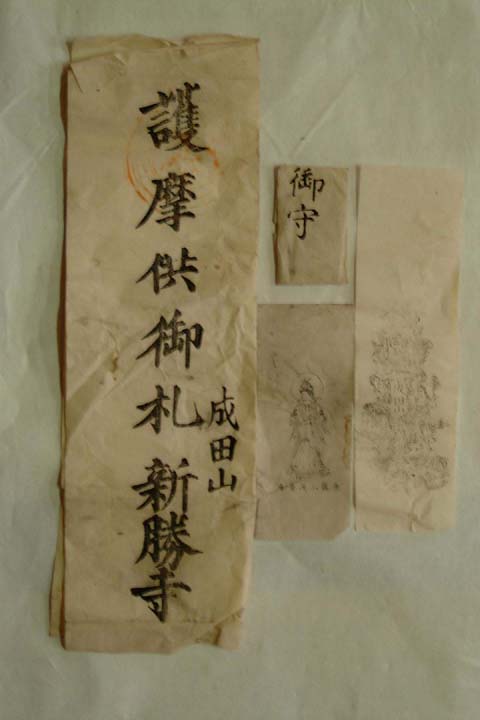 護摩供御札
成田山
新勝寺
御守